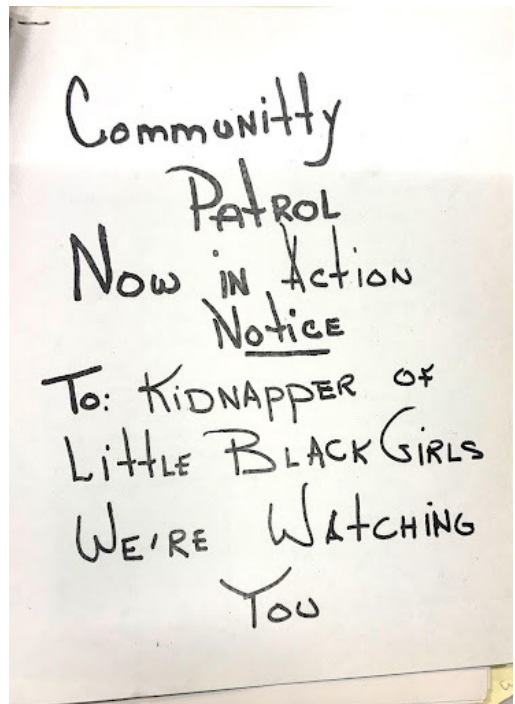 Communitty
Patrol
Now in Action
Notice
To: Kidnapper of
Little Black Girls
We're Watching
You